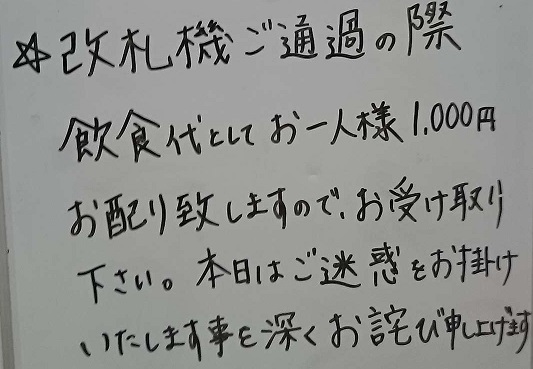 ☆改札機ご通過の際
飲食代としてお一人様1,000円
お配り致しますので、お受け取り
下さい。本日はご迷惑をお掛け
いたします事を深くお詫び申し上げます